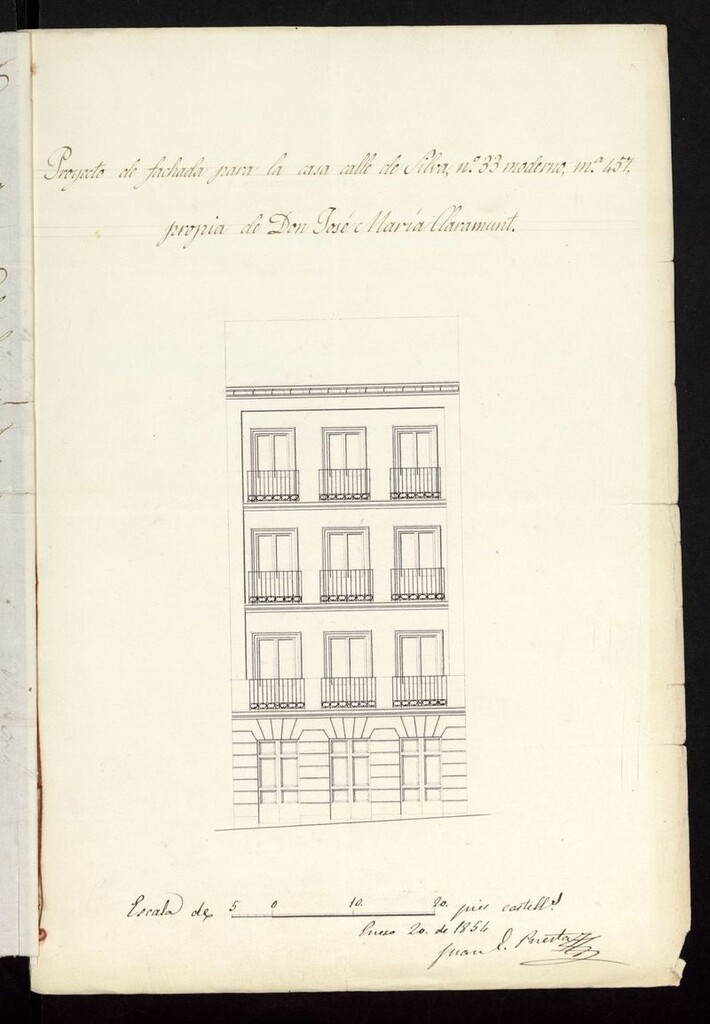 Proyecto de fachada para la casa calle de Silva, nº 33 moderno, mª 457,
propia de Don José María Claramunt.
Escala de 5 0 10. 20. pies castellˢ
Enero 20. de 1854
Juan C. Puerta